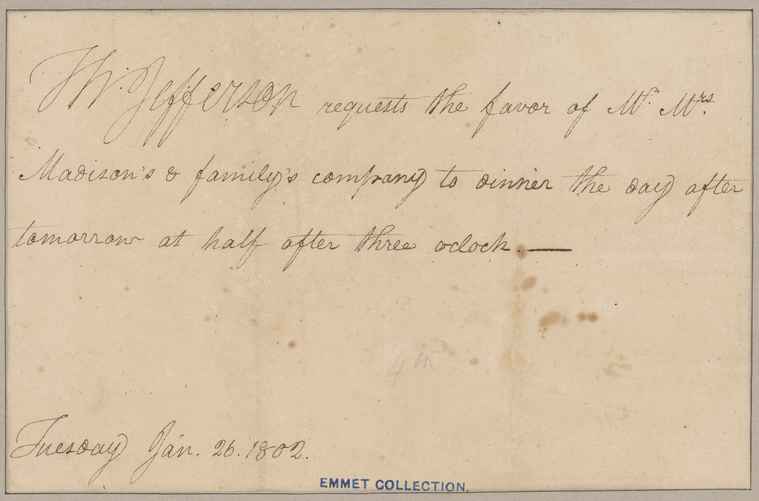 Th: Jefferson requests the favor of Mr. Mrs.
Madison's & family's company to dinner the day after
tomorrow at half after three oclock. —
4th
Tuesday Jan. 26. 1802.
EMMET COLLECTION.